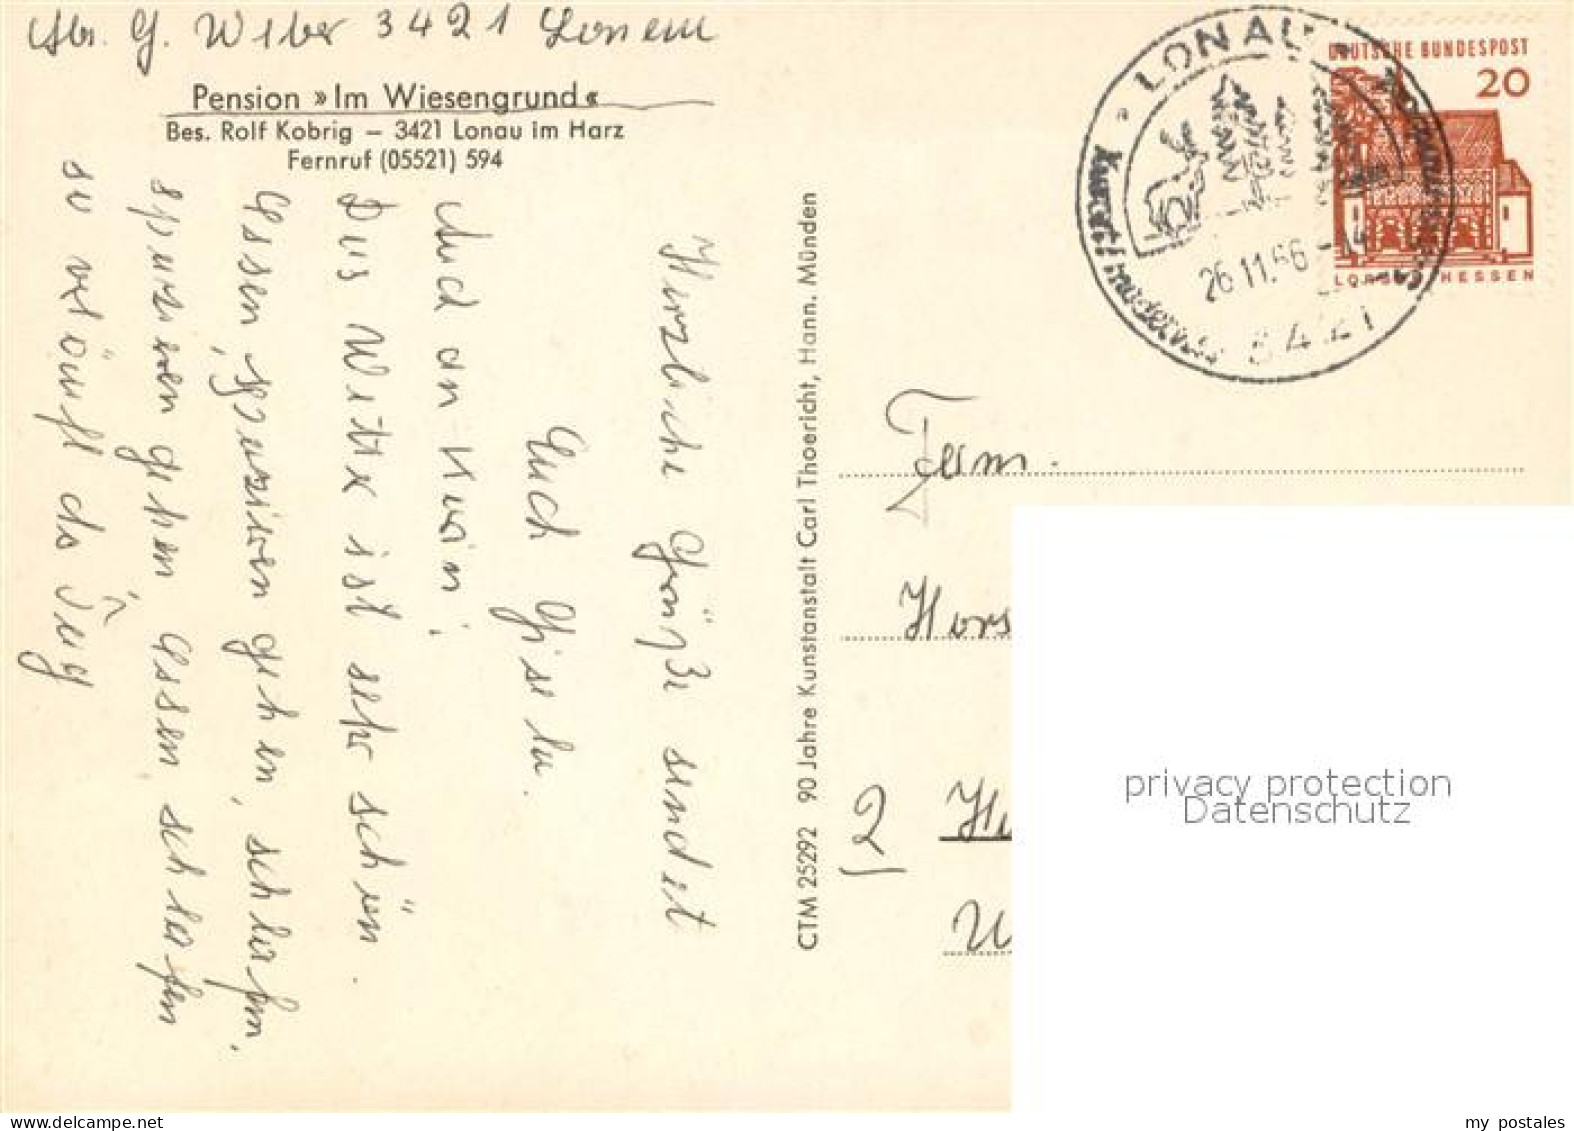 Abs. G. Weber 3421 Lonau
Pension »Im Wiesengrund«
Bes. Rolf Kobrig – 3421 Lonau im Harz
Fernruf (05521) 594
Herzliche Grüße sendet
Euch Gisela.
Auch an Karin!
Das Wetter ist sehr schön.
Essen, spazieren gehen, schlafen.
spazieren gehen Essen schlafen
so verläuft da Tag
CTM 25292 90 Jahre Kunstanstalt Carl Thoericht, Hann. Münden
LONAU
26.11.66-14
3421
DEUTSCHE BUNDESPOST
20
LORSCH HESSEN
Fam.
Hors
2
privacy protection
Datenschutz
www.delcampe.net
my postales